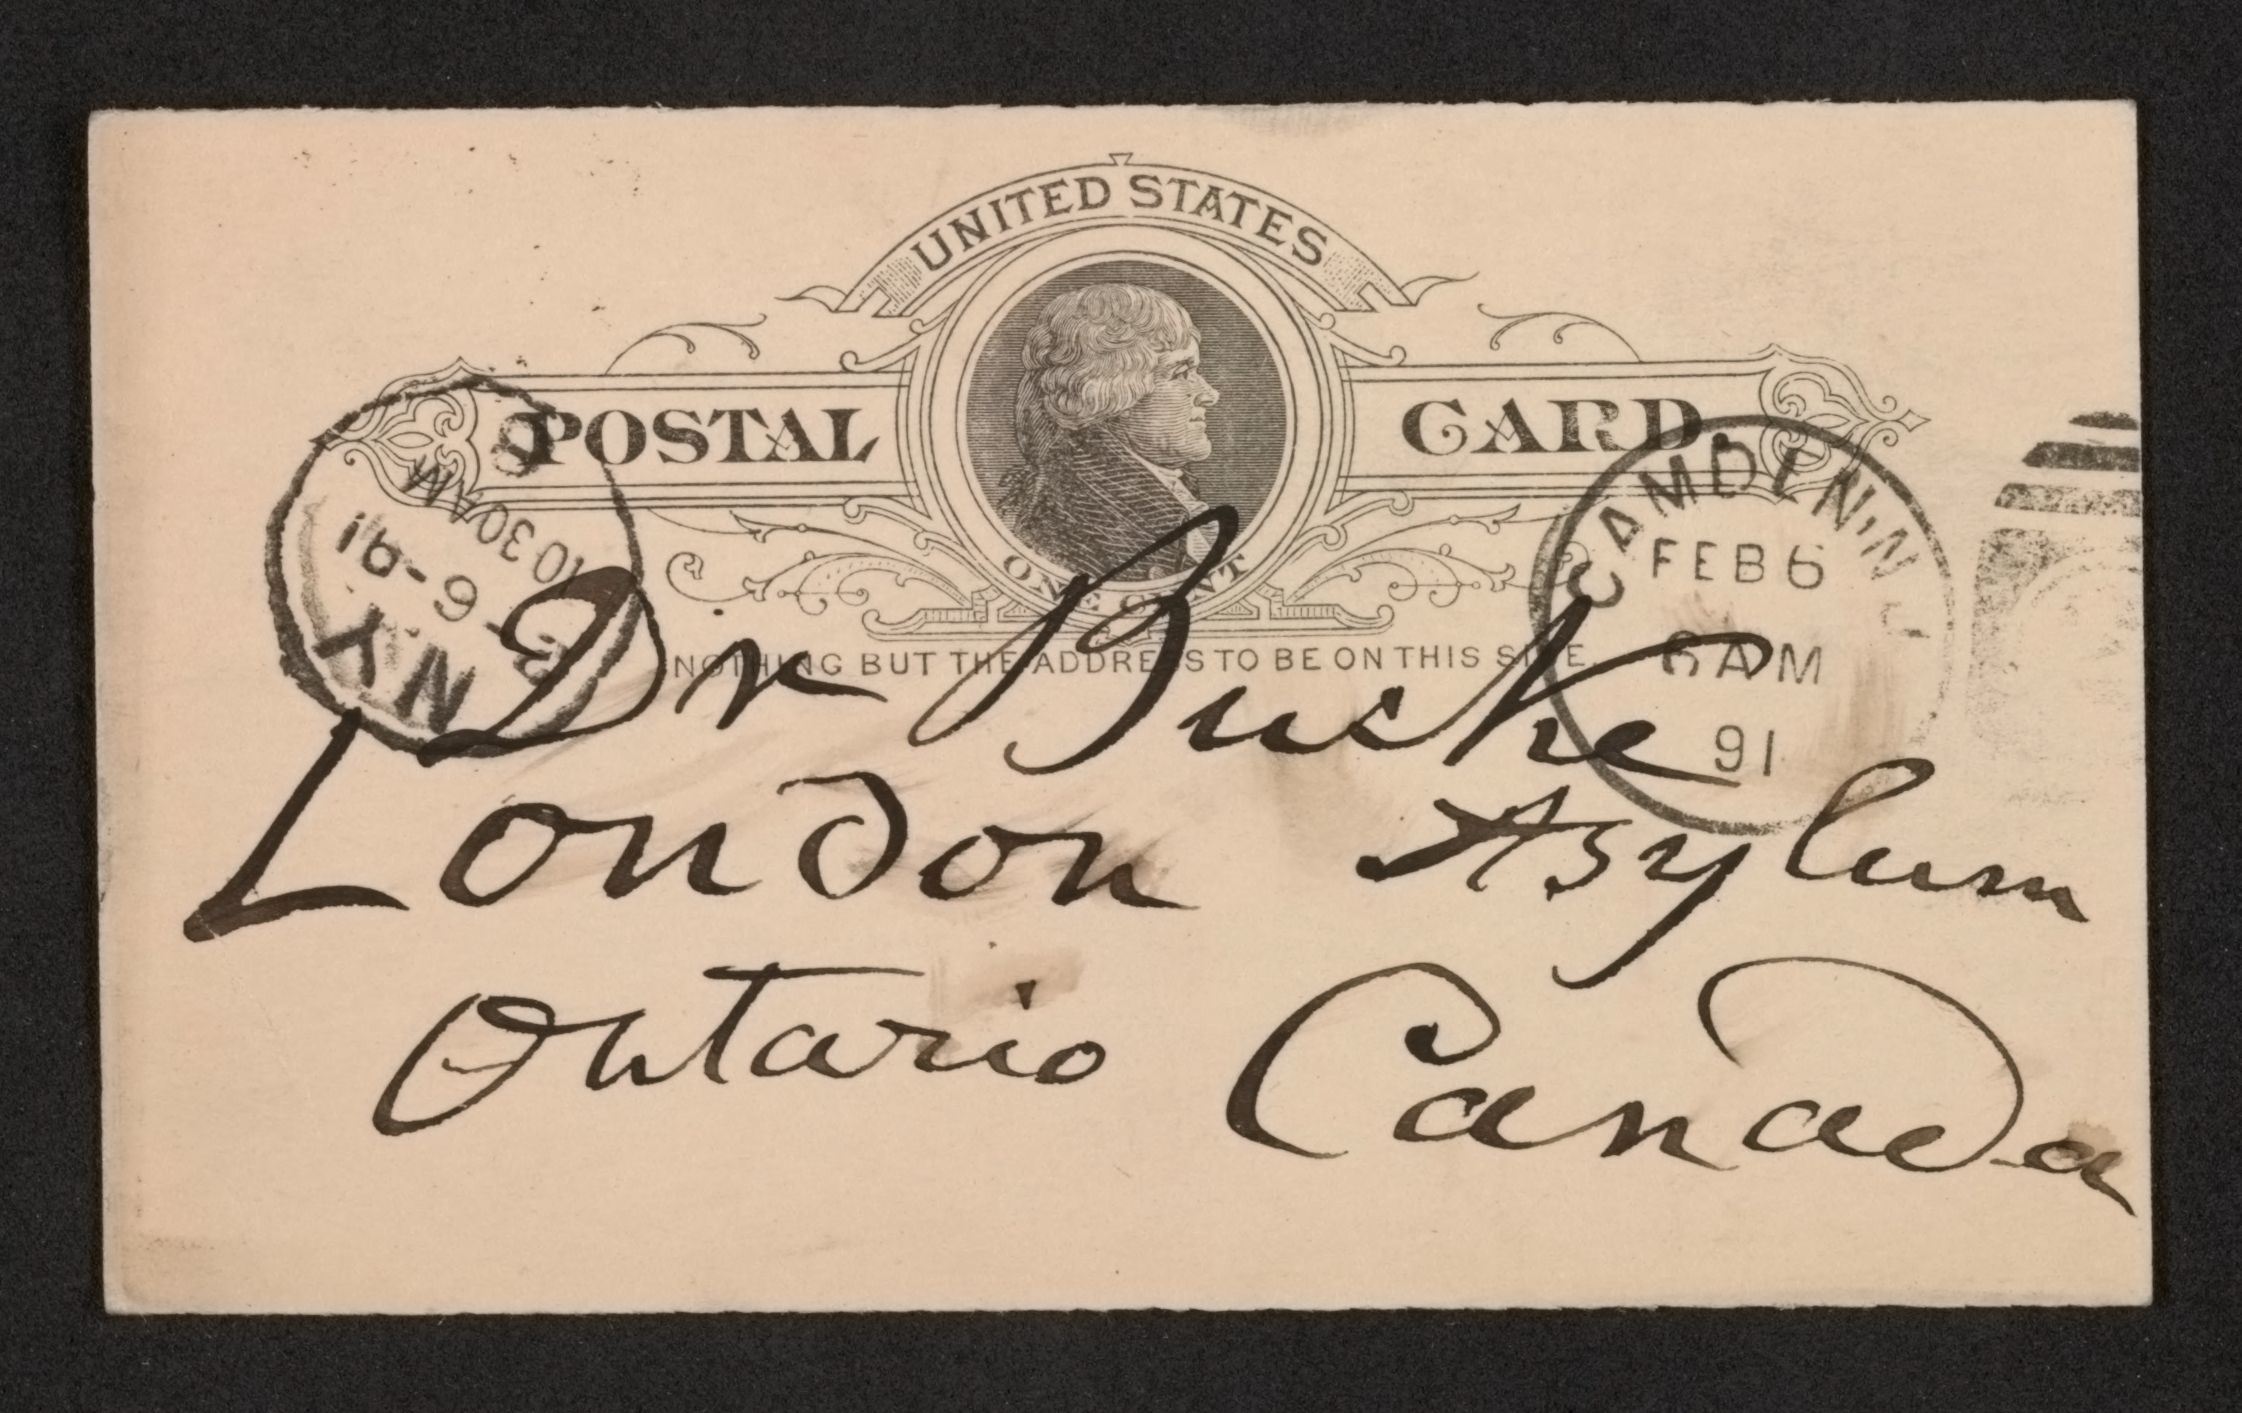 UNITED STATES
POSTAL CARD
ONE CENT
NOTHING BUT THE ADDRESS TO BE ON THIS SIDE.
CAMDEN, N J
FEB 6
6 AM
91
NY
2-6-91
10 30 AM
Dr Bucke
London Asylum
Ontario Canada